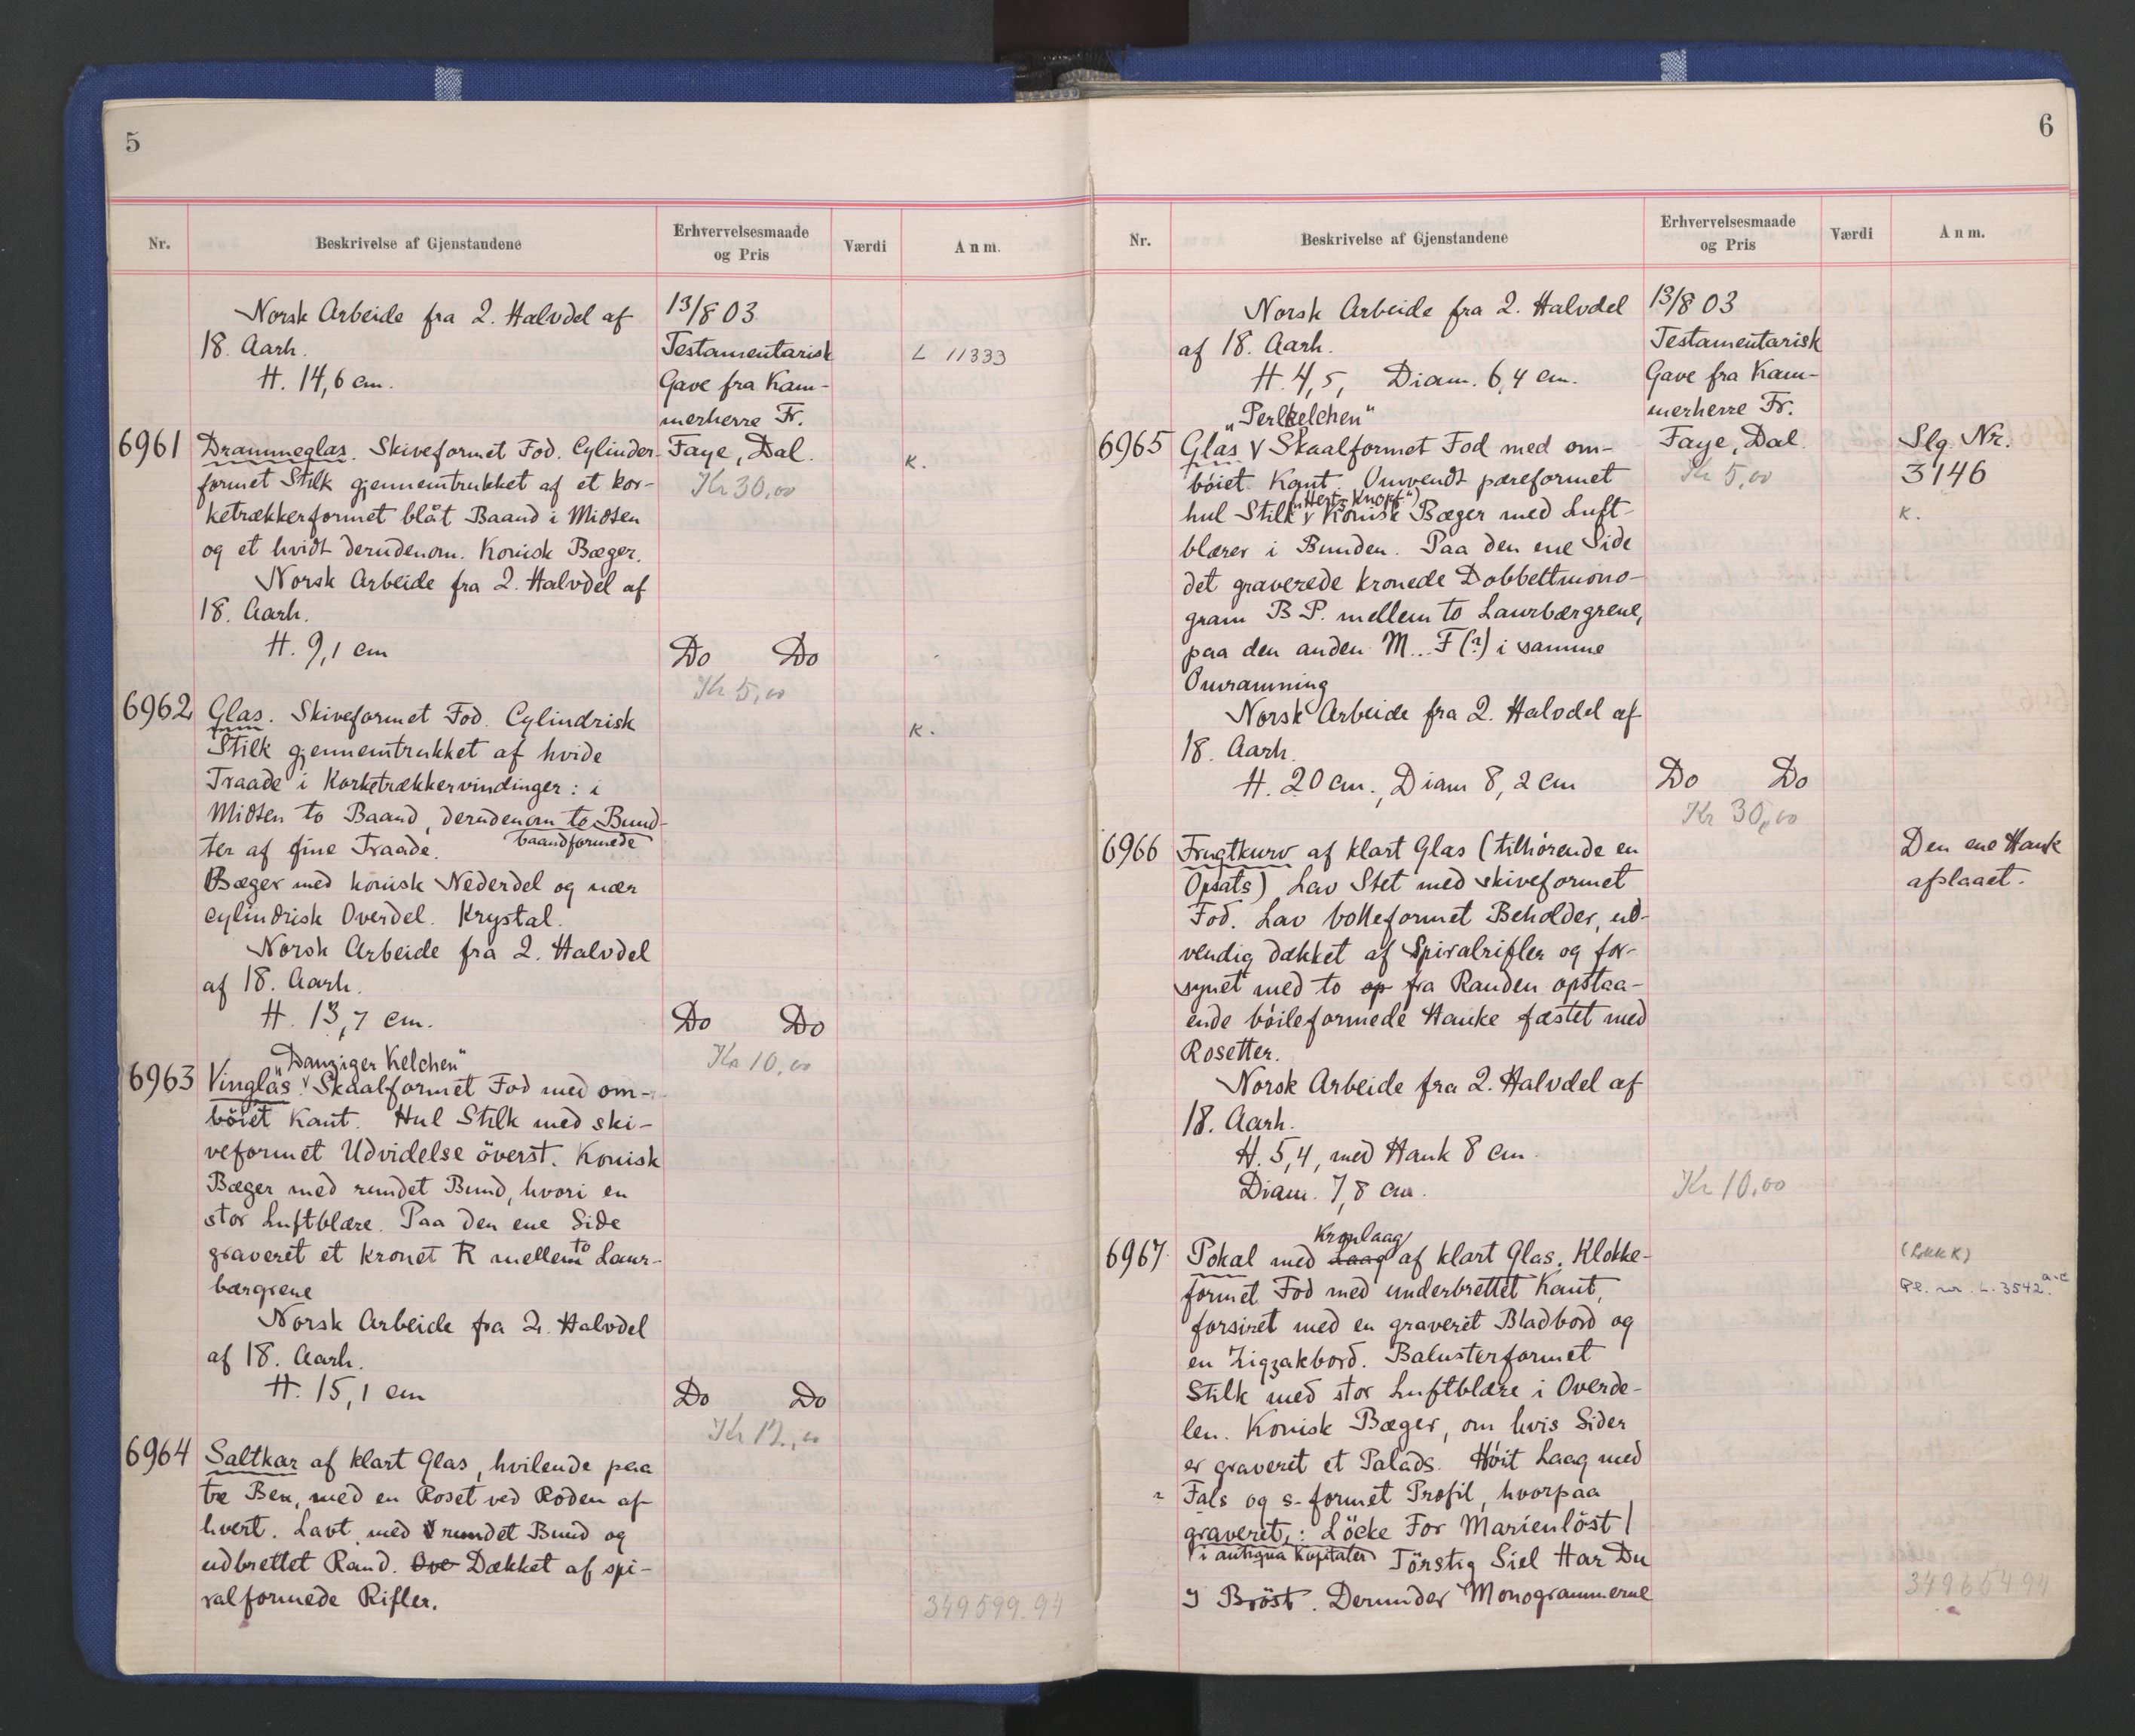 5
Nr.
Beskrivelse af Gjenstandene
Erhvervelsesmaade
og Pris
Værdi
Anm.
Norsk Arbeide fra 2. Halvdel af
18. Aarh.
H. 14,6 cm.
13/8 03
Testamentarisk
Gave fra Kam-
merherre Fr.
Faye, Dal.
Kr 30,00
L 11333
6961
Drammeglas. Skiveformet Fod. Cylinder-
formet Stilk gjennemtrukket af et kor-
ketrækkerformet blåt Baand i Midten
og et hvidt derudenom. Konisk Bæger.
Norsk Arbeide fra 2. Halvdel af
18. Aarh.
H. 9,1 cm
Do Do
Kr 5,00
K.
6962
Glas. Skiveformet Fod. Cylindrisk
Stilk gjennemtrukket af hvide
Traade i Korketrækkervindinger: i
Midten to Baand, derudenom to Bund-
baandformede
ter af fine Traade.
Bæger med konisk Nederdel og nær
cylindrisk Overdel. Krystal.
Norsk Arbeide fra 2. Halvdel
af 18. Aarh.
H. 13,7 cm.
Do Do
Kr 10,00
K.
6963
"Danziger Kelchen"
Vinglas. Skaalformet Fod med om-
böiet Kant. Hul Stilk med ski-
veformet Udvidelse överst. Konisk
Bæger med rundet Bund, hvori en
stor Luftblære. Paa den ene Side
graveret et kronet R mellem to Laur-
bærgrene
Norsk Arbeide fra 2. Halvdel
af 18. Aarh.
H. 15,1 cm
Do Do
Kr 12,00
6964
Saltkar af klart Glas, hvilende paa
tre Ben, med en Roset ved Roden af
hvert. Lavt med rundet Bund og
udbrettet Rand. Ove Dækket af spi-
ralformede Rifler.
349599.94
6
Nr.
Beskrivelse af Gjenstandene
Erhvervelsesmaade
og Pris
Værdi
Anm.
Norsk Arbeide fra 2. Halvdel
af 18. Aarh.
H. 4,5, Diam. 6,4 cm.
13/8 03
Testamentarisk
Gave fra Kam-
merherre Fr.
Faye, Dal.
Kr 5,00
6965
"Perlkelchen"
Glas V Skaalformet Fod med om-
böiet Kant. Omvendt pæreformet
("Herts Knopf")
hul Stilk V Konisk Bæger med Luft-
blærer i Bunden. Paa den ene Side
det graverede kronede Dobbeltmono-
gram B P. mellem to Laurbærgrene,
paa den anden M... F (?) i samme
Omramning
Norsk Arbeide fra 2. Halvdel af
18. Aarh.
H. 20 cm., Diam 8,2 cm
Do Do
Kr 30,00
Slg. Nr.
3146
K.
6966
Frugtkurv af klart Glas (tilhörende en
Opsats) Lav Stet med skiveformet
Fod. Lav bolleformet Beholder, ud-
vendig dækket af Spiralrifler og for-
synet med to op fra Randen opstaa-
ende böileformede Hanke fæstet med
Rosetter.
Norsk Arbeide fra 2. Halvdel af
18. Aarh.
H. 5,4, med Hank 8 cm
Diam. 7,8 cm.
Kr 10,00
Den ene Hank
afslaaet.
6967
Kronlaag
Pokal med Laag af klart Glas. Klokke-
formet Fod med underbrettet Kant,
forsiret med en graveret Bladbord og
en Zigzakbord. Balusterformet
Stilk med stor Luftblære i Overde-
len. Konisk Bæger, om hvis Sider
er graveret et Palads. Höit Laag med
Fals og s-formet Profil, hvorpaa
graveret: Löcke For Marienlöst /
i antiqua Kapitaler Törstig Siel Har Du
I Bröst. Derunder Monogrammerne
Pl. nr. L. 3542 a-c
349654.94